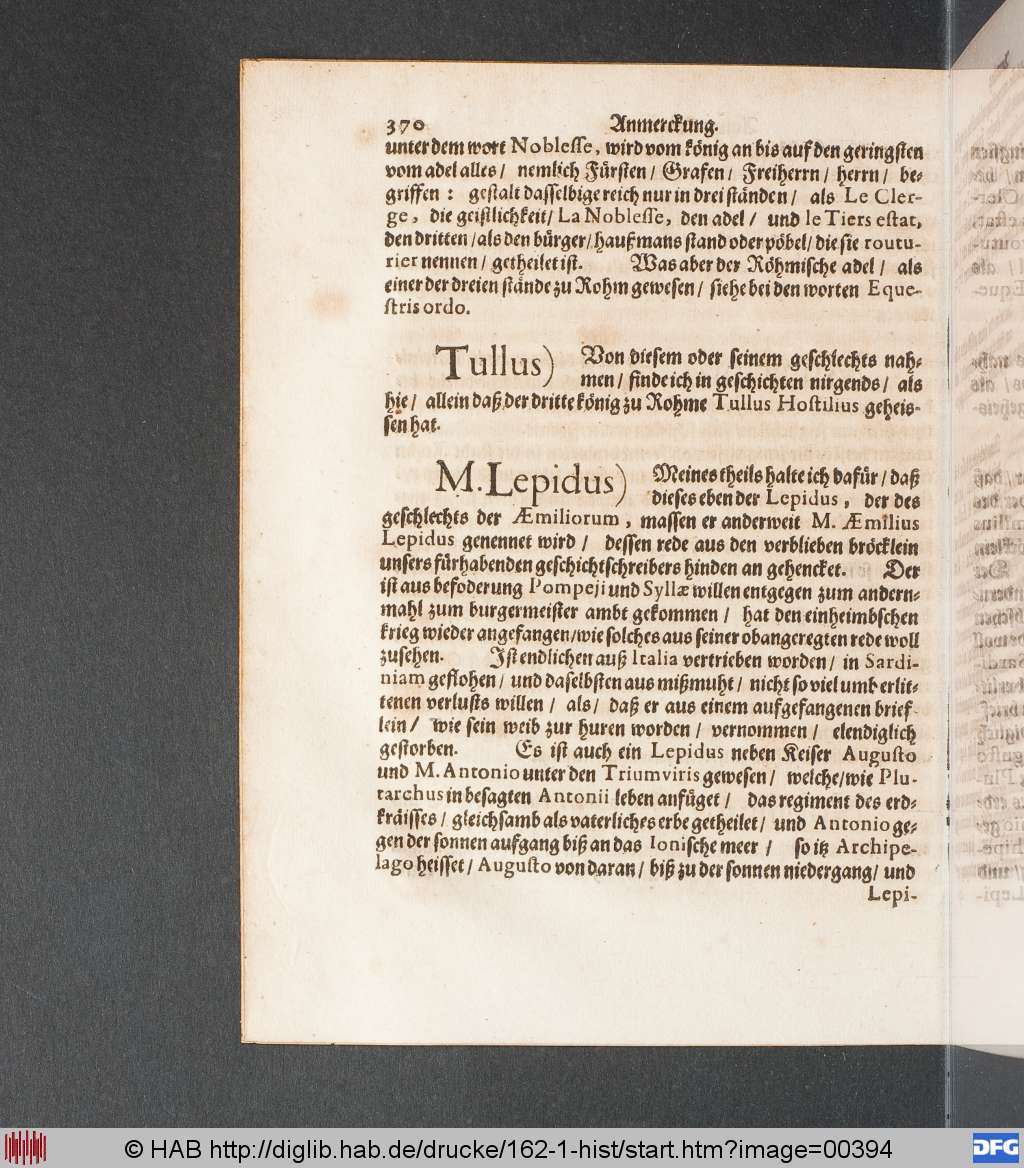 370 Anmerckung.
unter dem wort Noblesse, wird vom könig an bis auf den geringsten
vom adel alles / nemlich Fürsten / Grafen / Freiherrn / herrn / be-
griffen : gestalt dasselbige reich nur in drei ständen / als Le Cler-
ge, die geistlichkeit / La Noblesse, den adel / und le Tiers estat,
den dritten / als den bürger / haußmans stand oder pöbel / die sie routu-
rier nennen / getheilet ist. Was aber der Röhmische adel / als
einer der dreien stände zu Rohm gewesen / siehe bei den worten Eque-
stris ordo.
Tullus) Von diesem oder seinem geschlechts nah-
men / finde ich in geschichten nirgends / als
hie / allein daß der dritte könig zu Rohme Tullus Hostilius geheis-
sen hat.
M. Lepidus) Meines theils halte ich dafür / daß
dieses eben der Lepidus, der des
geschlechts der Æmiliorum, massen er anderweit M. Æmilius
Lepidus genennet wird / dessen rede aus den verblieben bröcklein
unsers fürhabenden geschichtschreibers hinden an gehencket. Der
ist aus befoderung Pompeji und Syllæ willen entgegen zum andern-
mahl zum burgermeister ambt gekommen / hat den einheimbschen
krieg wieder angefangen / wie solches aus seiner obangeregten rede woll
zusehen. Ist endlichen auß Italia vertrieben worden / in Sardi-
niam geflohen / und daselbsten aus mißmuht / nicht so viel umb erlit-
tenen verlusts willen / als / daß er aus einem aufgefangenen brief
lein / wie sein weib zur huren worden / vernommen / elendiglich
gestorben. Es ist auch ein Lepidus neben Keiser Augusto
und M. Antonio unter den Triumviris gewesen / welche / wie Plu-
tarchus in besagten Antonii leben anfüget / das regiment des erd-
kräisses / gleichsamb als vaterliches erbe getheilet / und Antonio ge-
gen der sonnen aufgang biß an das Ionische meer / so itz Archipe-
lago heisset / Augusto von daran / biß zu der sonnen niedergang / und
Lepi-
© HAB http://diglib.hab.de/drucke/162-1-hist/start.htm?image=00394
DFG